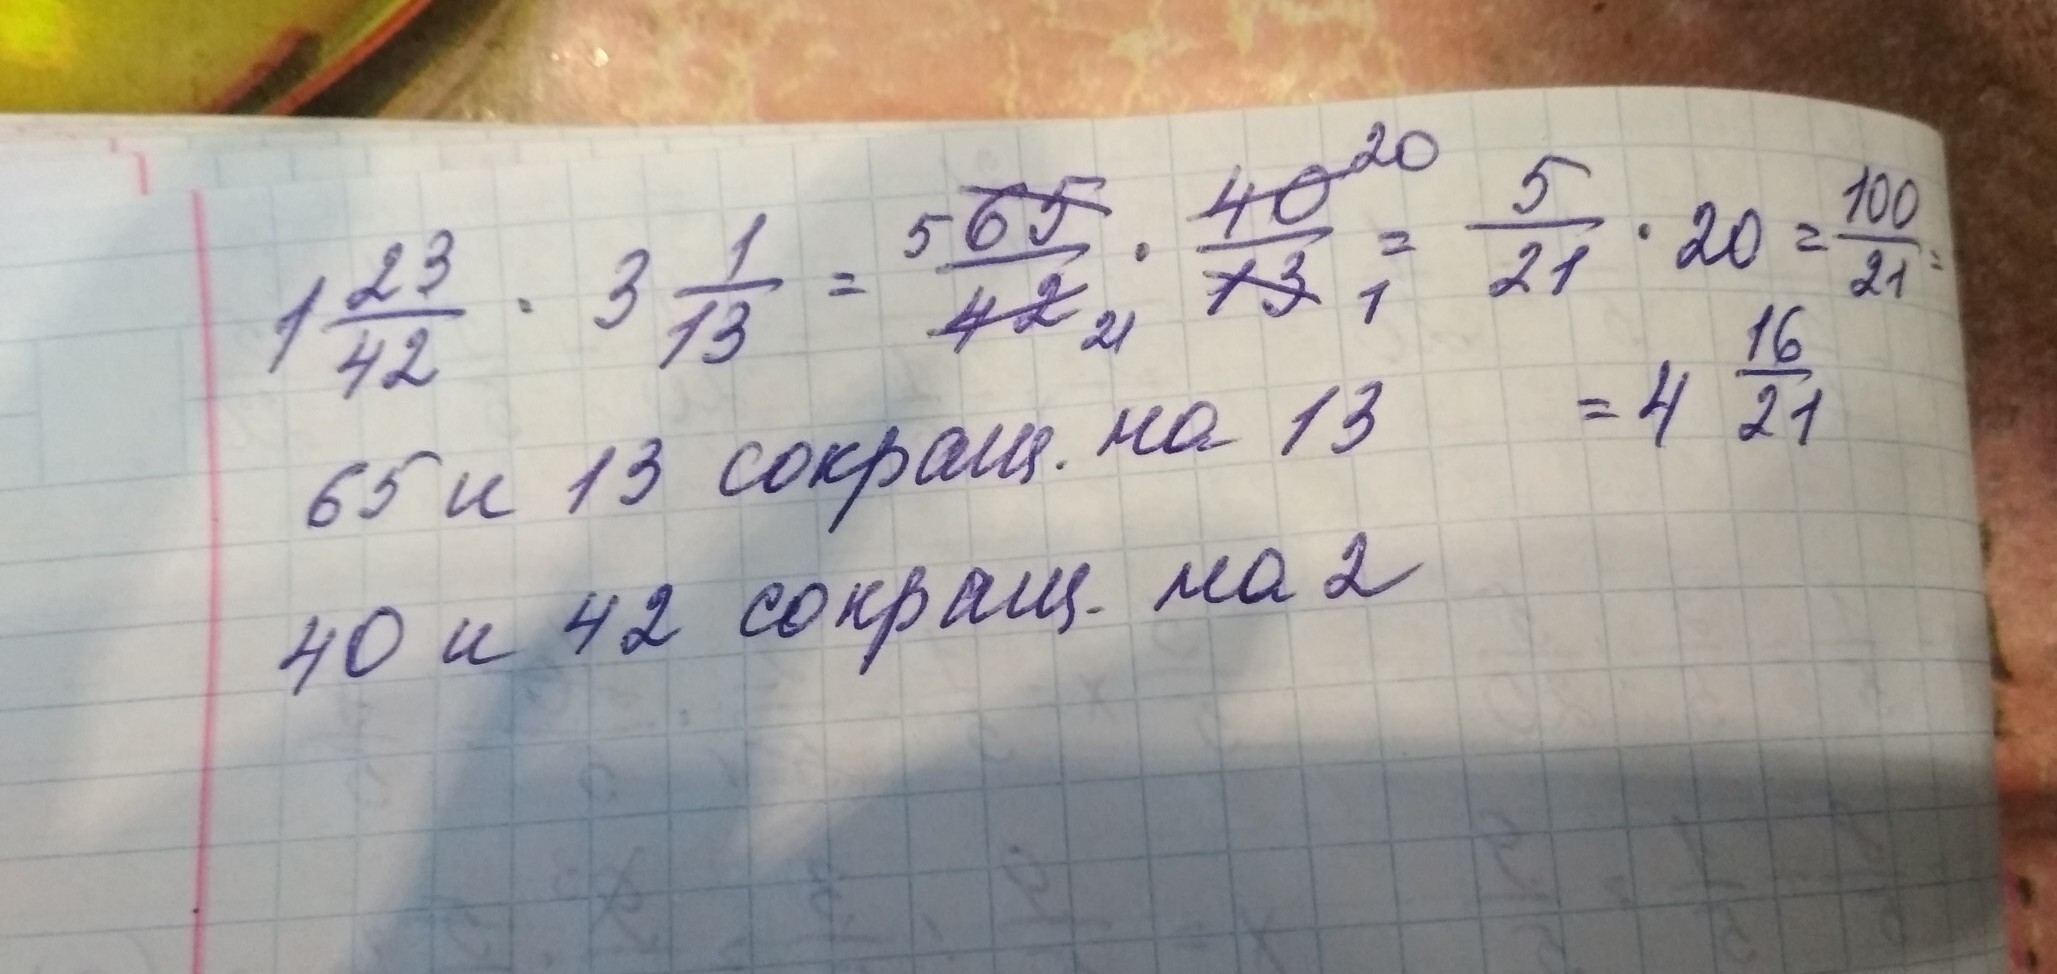 1 23/42 · 3 1/13 = 5 65/42 21 · 40 20/13 1 = 5/21 · 20 = 100/21 =
= 4 16/21
65 и 13 сокращ. на 13
40 и 42 сокращ. на 2